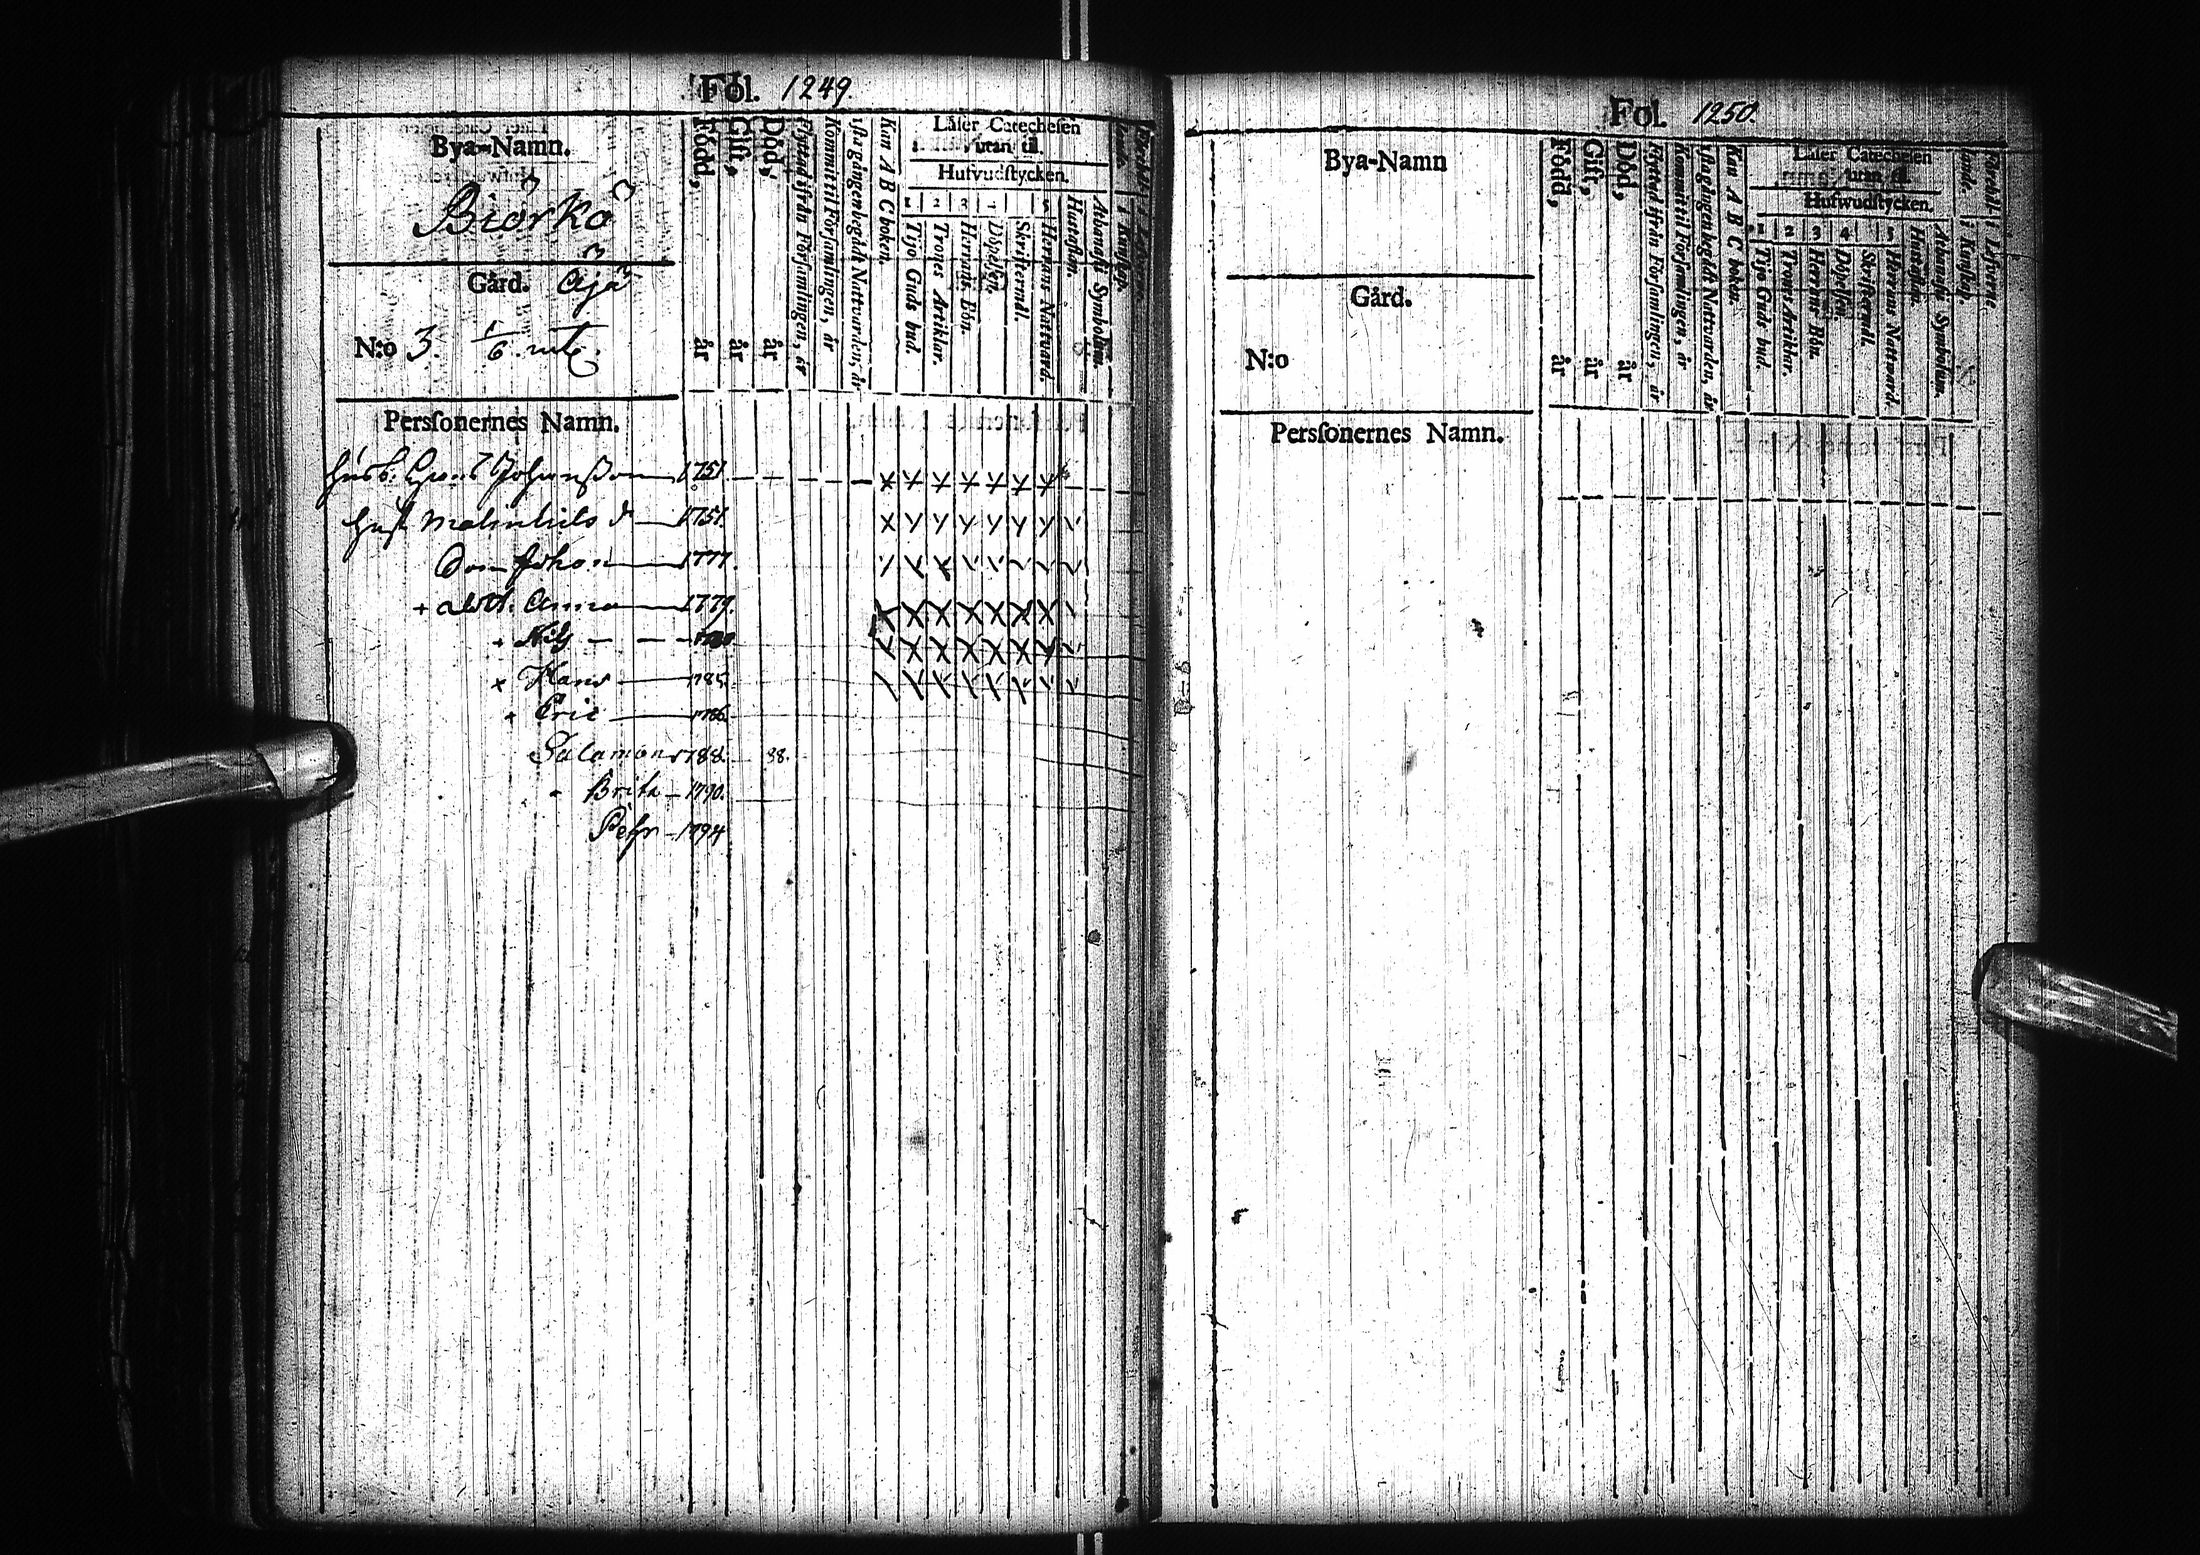 Fol. 1249
Bya-Namn.
Biörkö
Gård. Åjå
N:o 3. 1/6. mtl.
Född, år
Gift, år
Död, år
Flyttad ifrån Församlingen, år
Kommit til Församlingen, år
Kan A B C boken.
Läser Catechesen
utan til.
Hufvudstycken.
1 2 3
Tijo Guds bud.
Trones Artiklar.
Herrans Bön.
Döpelsen.
Skriftermål.
Herrans Nattvard.
Hustaflan.
Athanasii Symbolum.
i Kunskap.
Perssonernes Namn.
Johansson 1751
Hust Malin 1751.
Son Johan 1777.
+ dott. Anna 1779.
Nils
x Hans 1785.
Eric 1786.
Salamon 1788. 88.
Brita 1790.
Pehr 1794
Fol. 1250.
Bya-Namn
Gård.
N:o
Född, år
Gift, år
Död, år
Flyttad ifrån Församlingen, år
Kommit til Församlingen, år
Kan A B C boken.
Läser Catechesen
utan til.
Hufwudstycken.
1 2 3 4 5
Tijo Guds bud.
Trones Artiklar.
Herrans Bön.
Döpelsen.
Skriftermål.
Herrans Nattward.
Hustaflan.
Athanasii Symbolum.
i Kunskap.
i Lefverne.
Perssonernes Namn.